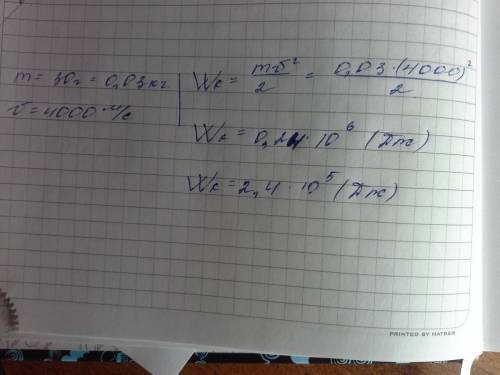 m = 30г = 0,03кг
υ = 4000 м/с
Wк = mυ²/2 = 0,03·(4000)²/2
Wк = 0,24·10⁶ (Дж)
Wк = 2,4·10⁵ (Дж)
PRINTED BY HATBER